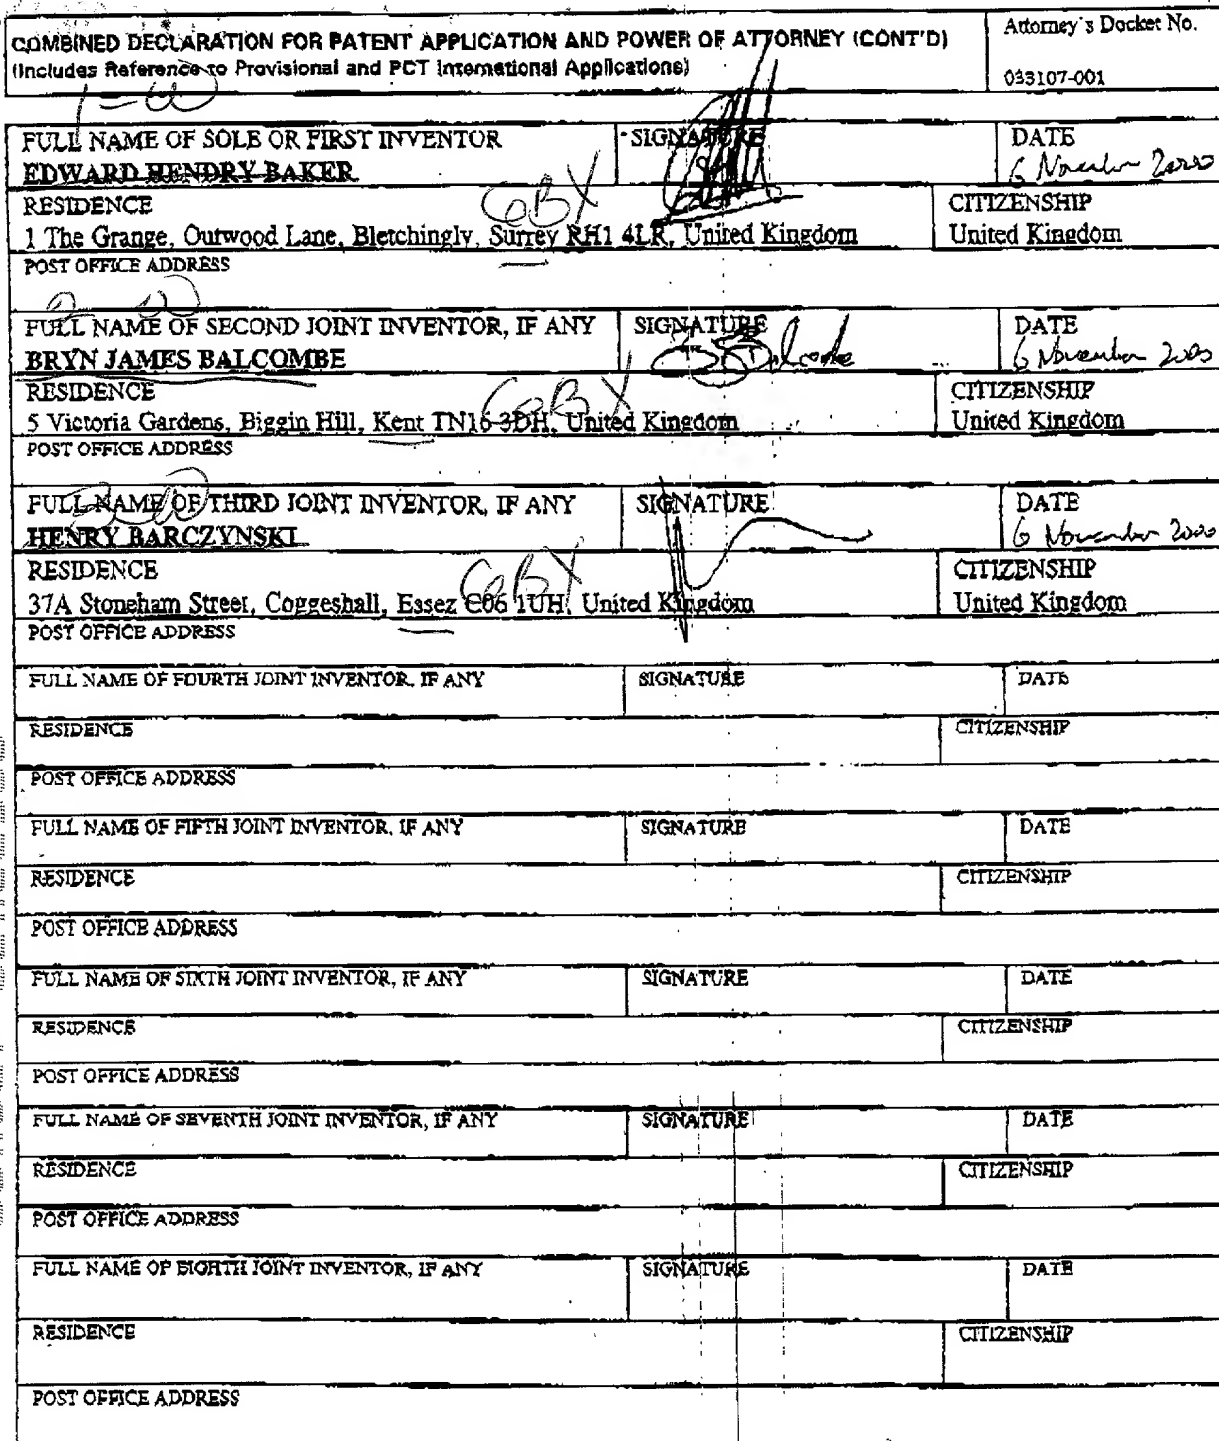 COMBINED DECLARATION FOR PATENT APPLICATION AND POWER OF ATTORNEY (CONT'D)
(Includes Reference to Provisional and PCT International Applications)
Attorney's Docket No.
033107-001
FULL NAME OF SOLE OR FIRST INVENTOR
EDWARD HENDRY BAKER
SIGNATURE
DATE
6 November 2000
RESIDENCE
GBX
1 The Grange, Outwood Lane, Bletchingly, Surrey RH1 4LR, United Kingdom
CITIZENSHIP
United Kingdom
POST OFFICE ADDRESS
FULL NAME OF SECOND JOINT INVENTOR, IF ANY
BRYN JAMES BALCOMBE
SIGNATURE
DATE
6 November 2000
RESIDENCE
GBX
5 Victoria Gardens, Biggin Hill, Kent TN16 3DH, United Kingdom
CITIZENSHIP
United Kingdom
POST OFFICE ADDRESS
FULL NAME OF THIRD JOINT INVENTOR, IF ANY
HENRY BARCZYNSKI
SIGNATURE
DATE
6 November 2000
RESIDENCE
GBX
37A Stoneham Street, Coggeshall, Essez C06 1UH, United Kingdom
CITIZENSHIP
United Kingdom
POST OFFICE ADDRESS
FULL NAME OF FOURTH JOINT INVENTOR, IF ANY
SIGNATURE
DATE
RESIDENCE
CITIZENSHIP
POST OFFICE ADDRESS
FULL NAME OF FIFTH JOINT INVENTOR, IF ANY
SIGNATURE
DATE
RESIDENCE
CITIZENSHIP
POST OFFICE ADDRESS
FULL NAME OF SIXTH JOINT INVENTOR, IF ANY
SIGNATURE
DATE
RESIDENCE
CITIZENSHIP
POST OFFICE ADDRESS
FULL NAME OF SEVENTH JOINT INVENTOR, IF ANY
SIGNATURE
DATE
RESIDENCE
CITIZENSHIP
POST OFFICE ADDRESS
FULL NAME OF EIGHTH JOINT INVENTOR, IF ANY
SIGNATURE
DATE
RESIDENCE
CITIZENSHIP
POST OFFICE ADDRESS